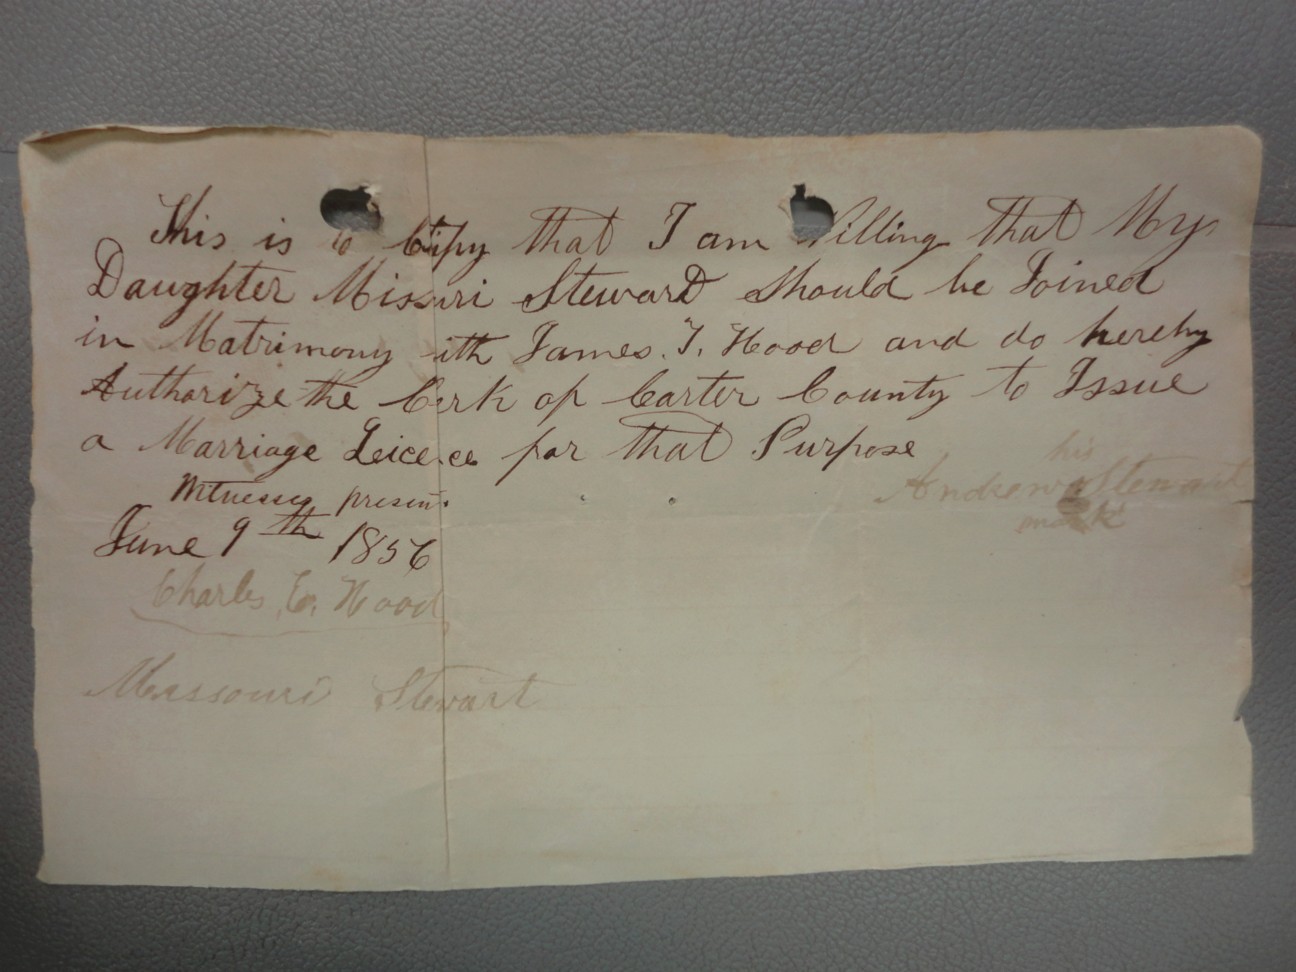 This is to Ctify that I am Willing that My
Daughter Missuri Steward Should be Joined
in Matrimony ith James. T. Hood and do hereby
Authorize the Clerk of Carter County to Issue
a Marriage Leicence for that Purpose
his
Andrew x Stewart
mark
Witnesses present
June 9th 1856
Charles E. Hood
Missouri Stewart